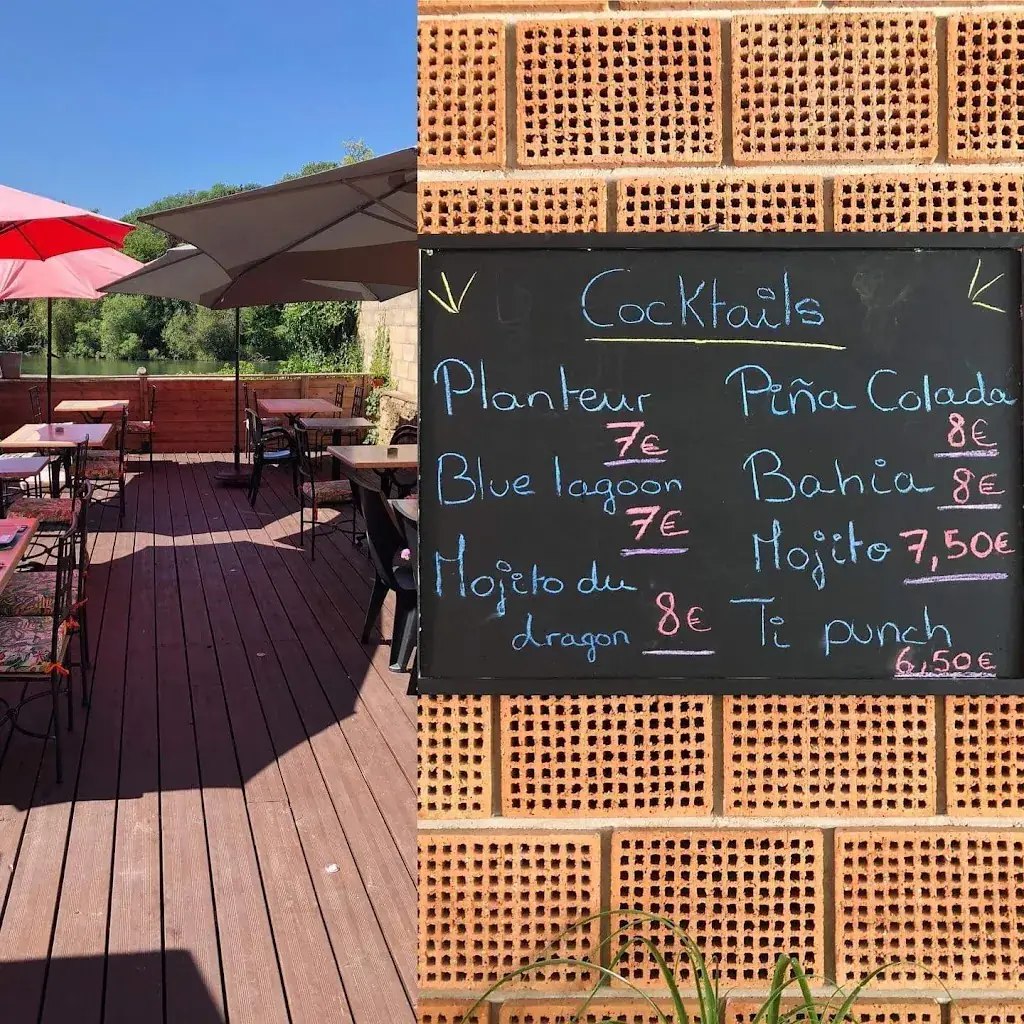 Cocktails
Planteur
7€
Blue lagoon
7€
Mojito du
dragon 8€
Piña Colada
8€
Bahia 8€
Mojito 7,50€
Ti punch
6,50€